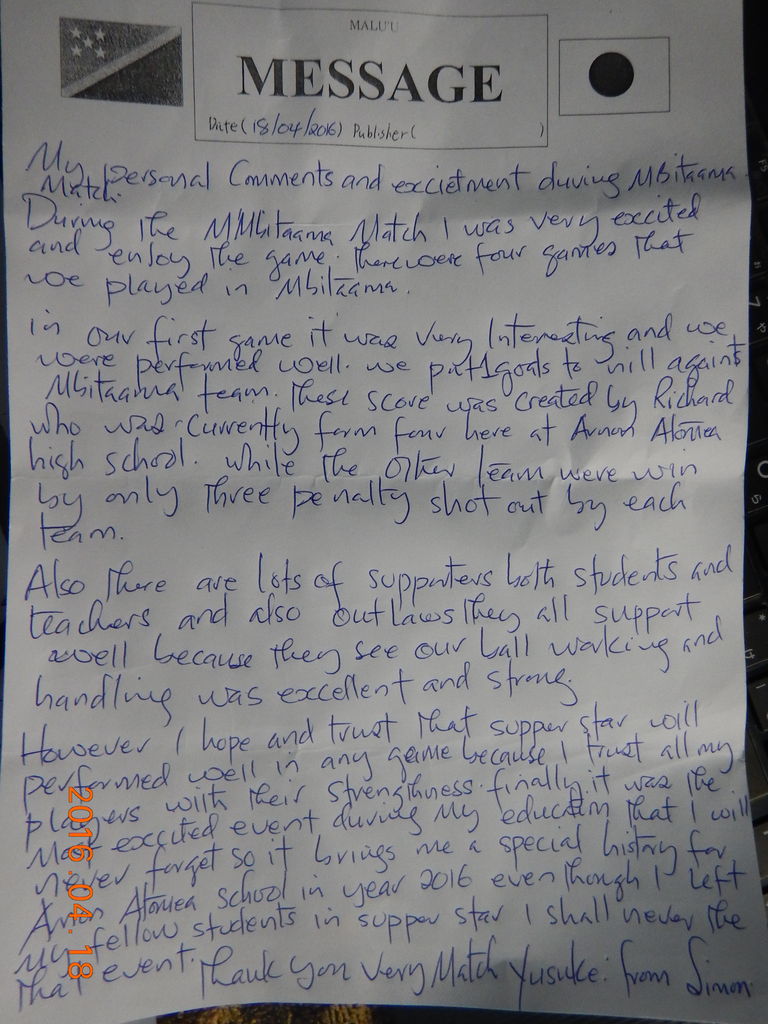 MALU'U
MESSAGE
Date (18/04/2016) Publisher( )
My personal Comments and exccietment during Mbitaama
Match.
During the MMbitaama Match I was very exccited
and enjoy the game. there were four games that
we played in Mbitaama.
in our first game it was very Interesting and we
were performed well. we put 1 goals to nill againts
Mbitaama team. These score was created by Richard
who was currently form four here at Arnon Atomea
high school. while the other team were win
by only three penalty shot out by each
team.
Also there are lots of supporters both students and
teachers and also outlaws they all support
well because they see our ball working and
handling was excellent and strong.
However I hope and trust that supper star will
performed well in any game because I trust all my
players with their strengthness. finally it was the
Most exccited event during My education that I will
never forget so it brings me a special history for
Arnon Atomea school in year 2016 even though I left
My fellow students in supper star I shall never the
that event. Thank you Very Match Yusuke. from Simon
2016.04.18